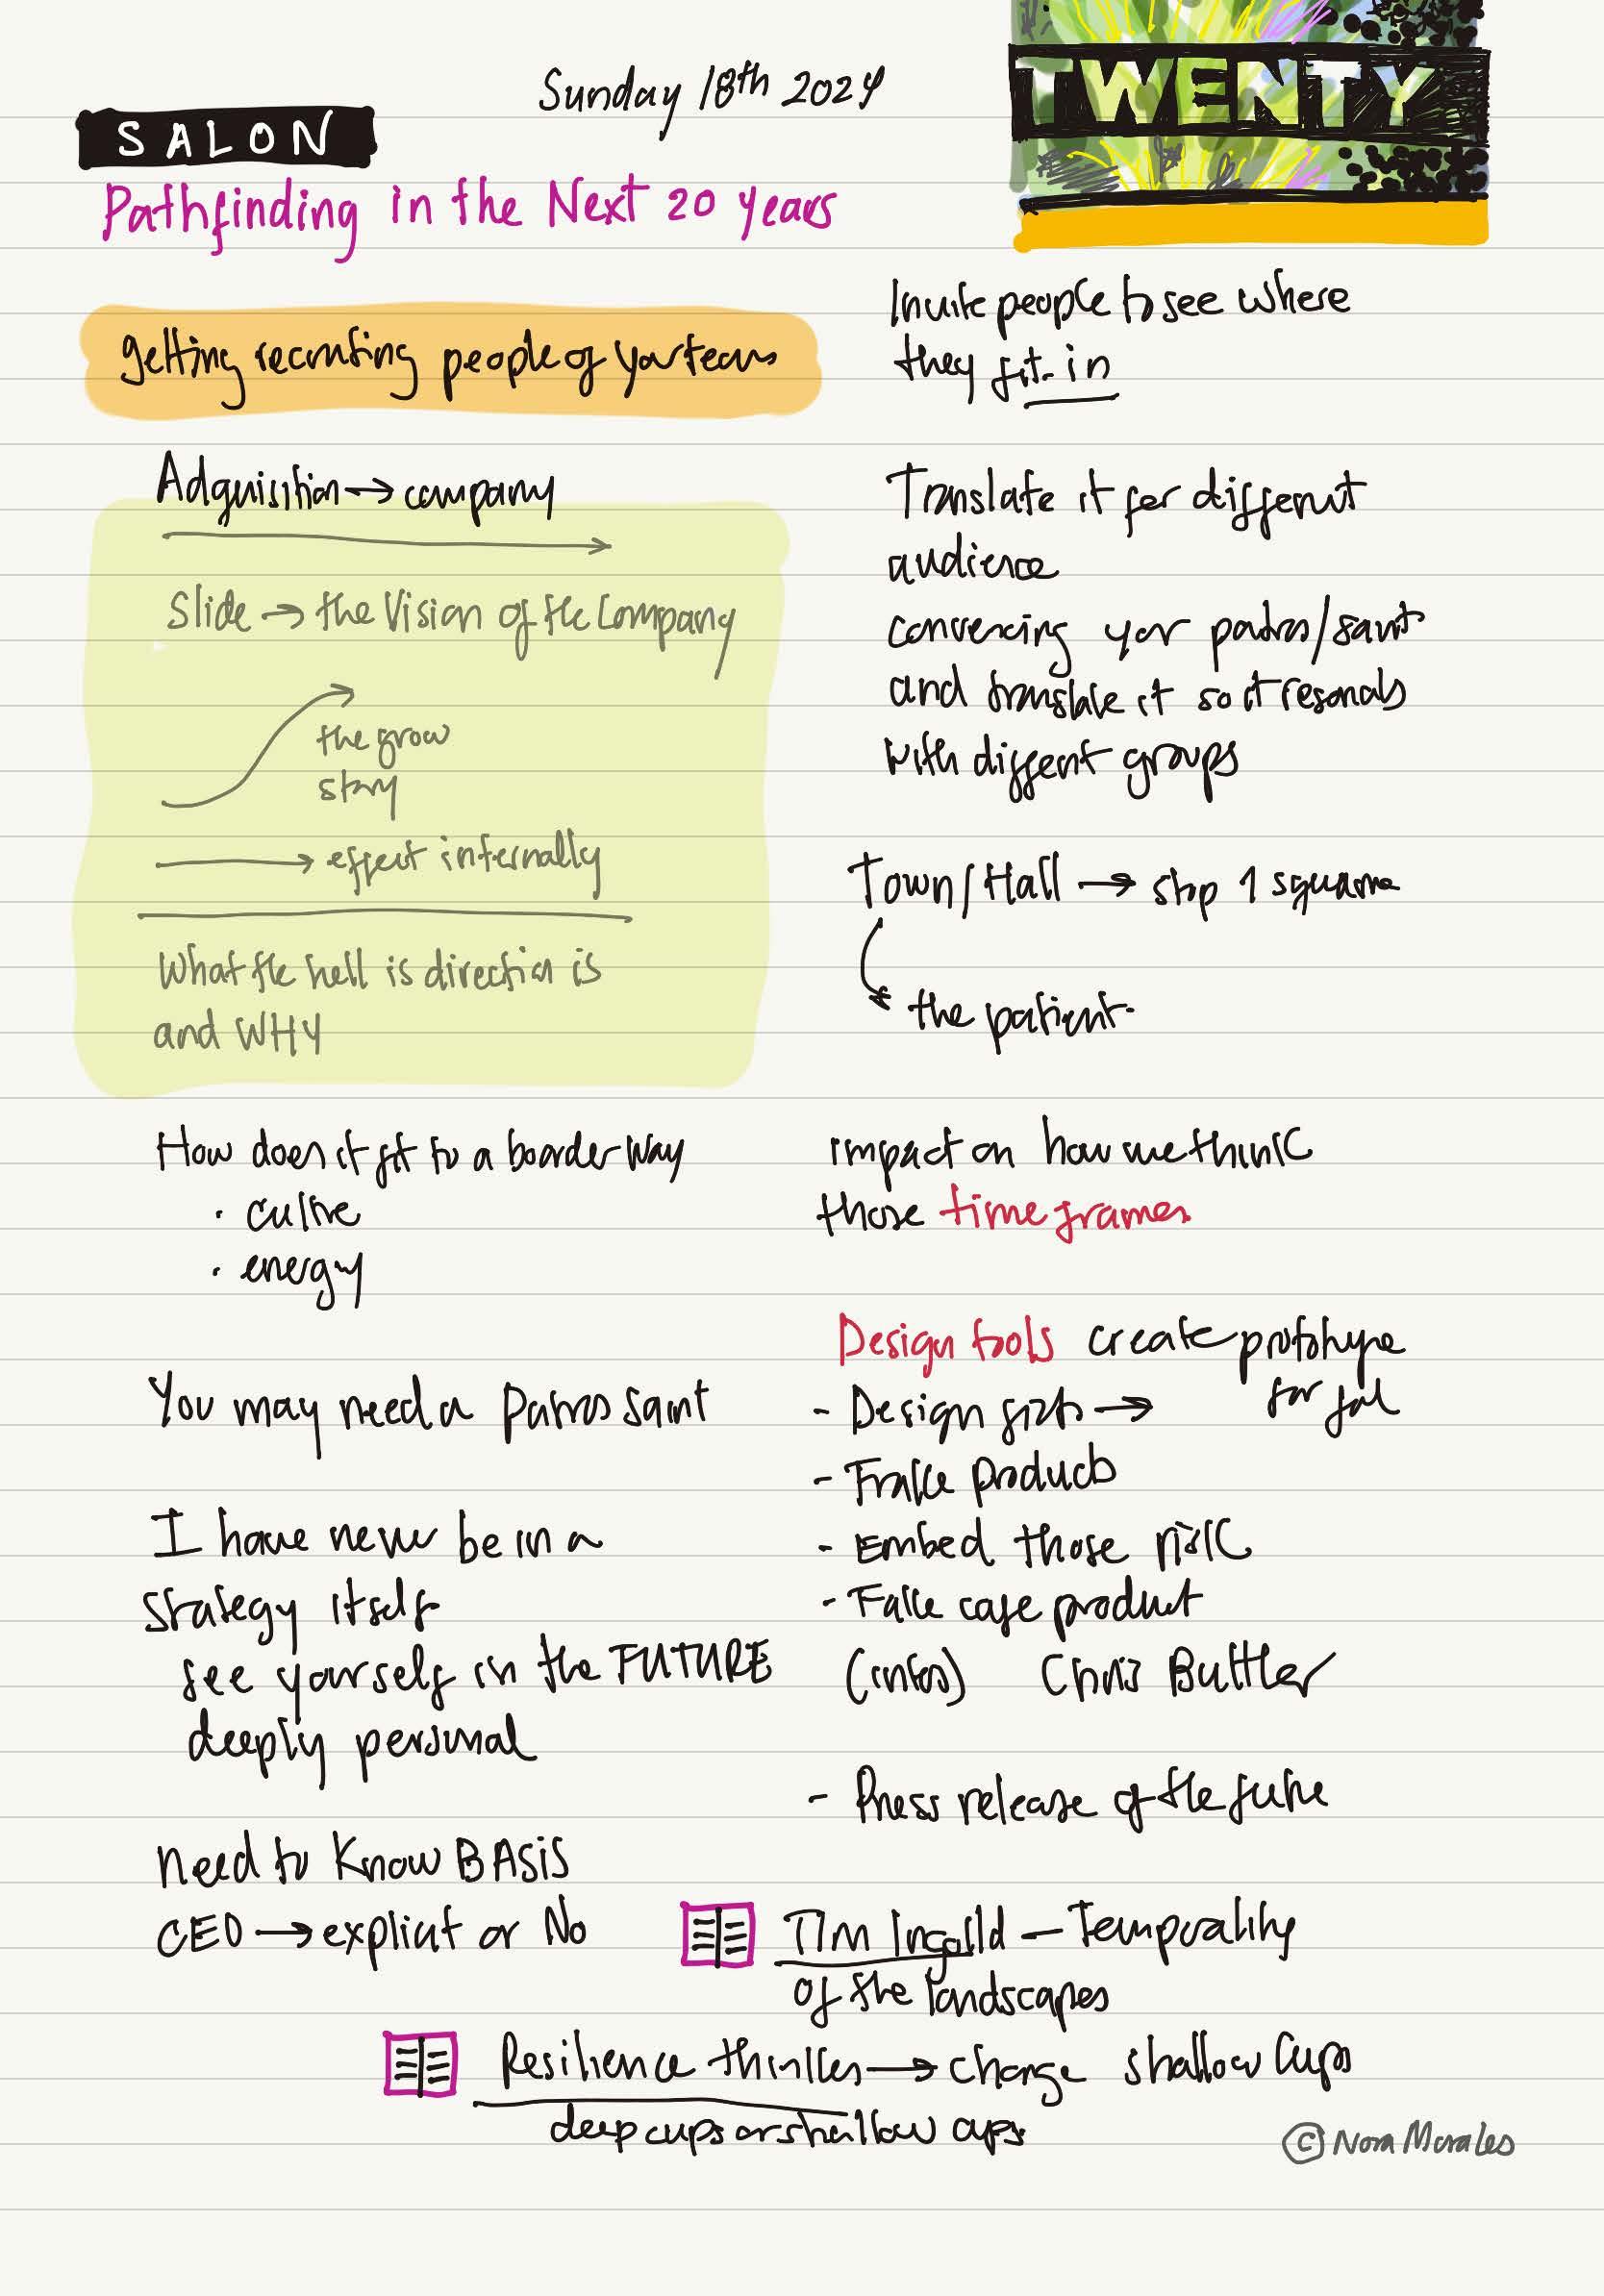 Sunday 18th 2024
TWENTY
SALON
Pathfinding in the Next 20 years
getting recruting people of your team
Adquisition → company
Slide → the Vision of the Company
the grow
story
→ effect internally
What the hell is direction is
and WHY
How does it fit to a boarder way
· culture
· energy
You may need a Patros saint
I have never be in a
strategy itself
see yourself in the FUTURE
deeply personal
need to Know BASIS
CEO → explicit or No
Invite people to see where
they fit in
Translate it for different
audience
convencing your patros/saint
and translate it so it resonates
with diffent groups
Town/Hall → stop 1 square
the patient
impact on how we think
those time frames
Design tools create prototype
- Design → for fail
- Frake products
- Embed those risk
- Fake case product
(intos) Chris Buttler
- Press release of the future
Tim Ingolld — Temporality
of the landscapes
Resilience thinken → change shallow Cups
deep cups or shallow cups
© Nora Morales